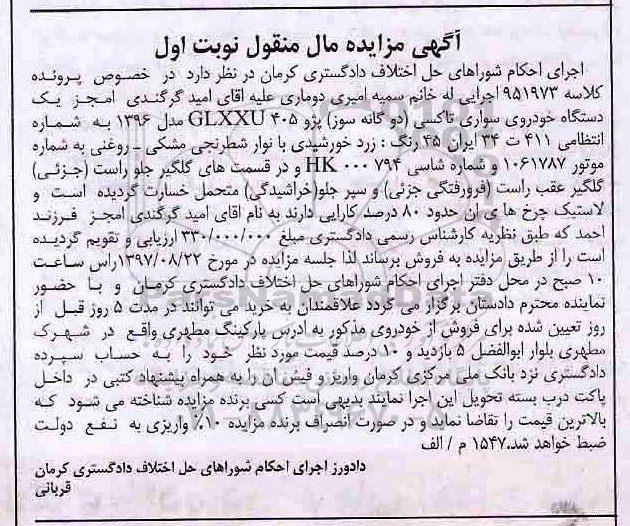 آگهی مزایده مال منقول نوبت اول
اجرای احکام شوراهای حل اختلاف دادگستری کرمان در نظر دارد در خصوص پرونده
کلاسه ۹۵۱۹۷۳ اجرایی له خانم سمیه امیری دوماری علیه اقای امید گرگندی امجز یک
دستگاه خودروی سواری تاکسی (دو گانه سوز) پژو ۴۰۵ GLXXU مدل ۱۳۹۶ به شماره
انتظامی ۴۱۱ ت ۳۴ ایران ۴۵ رنگ : زرد خورشیدی با نوار شطرنجی مشکی ـ روغنی به شماره
موتور ۱۰۶۱۷۸۷ و شماره شاسی HK ۰۰۰ ۷۹۴ و در قسمت های گلگیر جلو راست (جزئی)
گلگیر عقب راست (فرورفتگی جزئی) و سپر جلو(خراشیدگی) متحمل خسارت گردیده است و
لاستیک چرخ ها ی ان حدود ۸۰ درصد کارایی دارند به نام اقای امید گرگندی امجز فرزند
احمد که طبق نظریه کارشناس رسمی دادگستری مبلغ ۳۳۰/۰۰۰/۰۰۰ ارزیابی و تقویم گردیده
است را از طریق مزایده به فروش برساند لذا جلسه مزایده در مورخ ۱۳۹۷/۰۸/۲۲راس ساعت
۱۰ صبح در محل دفتر اجرای احکام شوراهای حل اختلاف دادگستری کرمان و با حضور
نماینده محترم دادستان برگزار می گردد علاقمندان به خرید می توانند در مدت ۵ روز قبل از
روز تعیین شده برای فروش از خودروی مذکور به ادرس پارکینگ مطهری واقع در شهرک
مطهری بلوار ابوالفضل ۵ بازدید و ۱۰ درصد قیمت مورد نظر خود را به حساب سپرده
دادگستری نزد بانک ملی مرکزی کرمان واریز و فیش ان را به همراه پیشنهاد کتبی در داخل
پاکت درب بسته تحویل این اجرا نمایند بدیهی است کسی برنده مزایده شناخته می شود که
بالاترین قیمت را تقاضا نماید و در صورت انصراف برنده مزایده ۱۰٪ واریزی به نفع دولت
ضبط خواهد شد.۱۵۴۷ م / الف
دادورز اجرای احکام شوراهای حل اختلاف دادگستری کرمان
قربانی